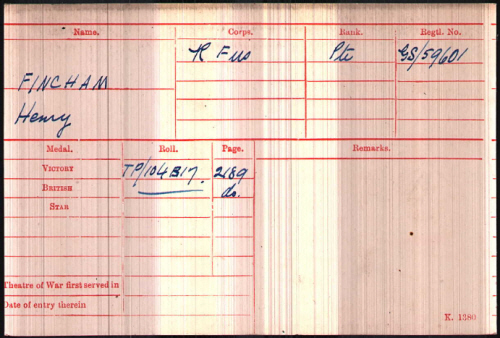 Name. Corps. Rank. Regtl. No.
R Fus Pte GS/59601
FINCHAM
Henry
Medal. Roll. Page. Remarks.
VICTORY TP/104B17. 2189
BRITISH do.
STAR
Theatre of War first served in
Date of entry therein
K. 1380